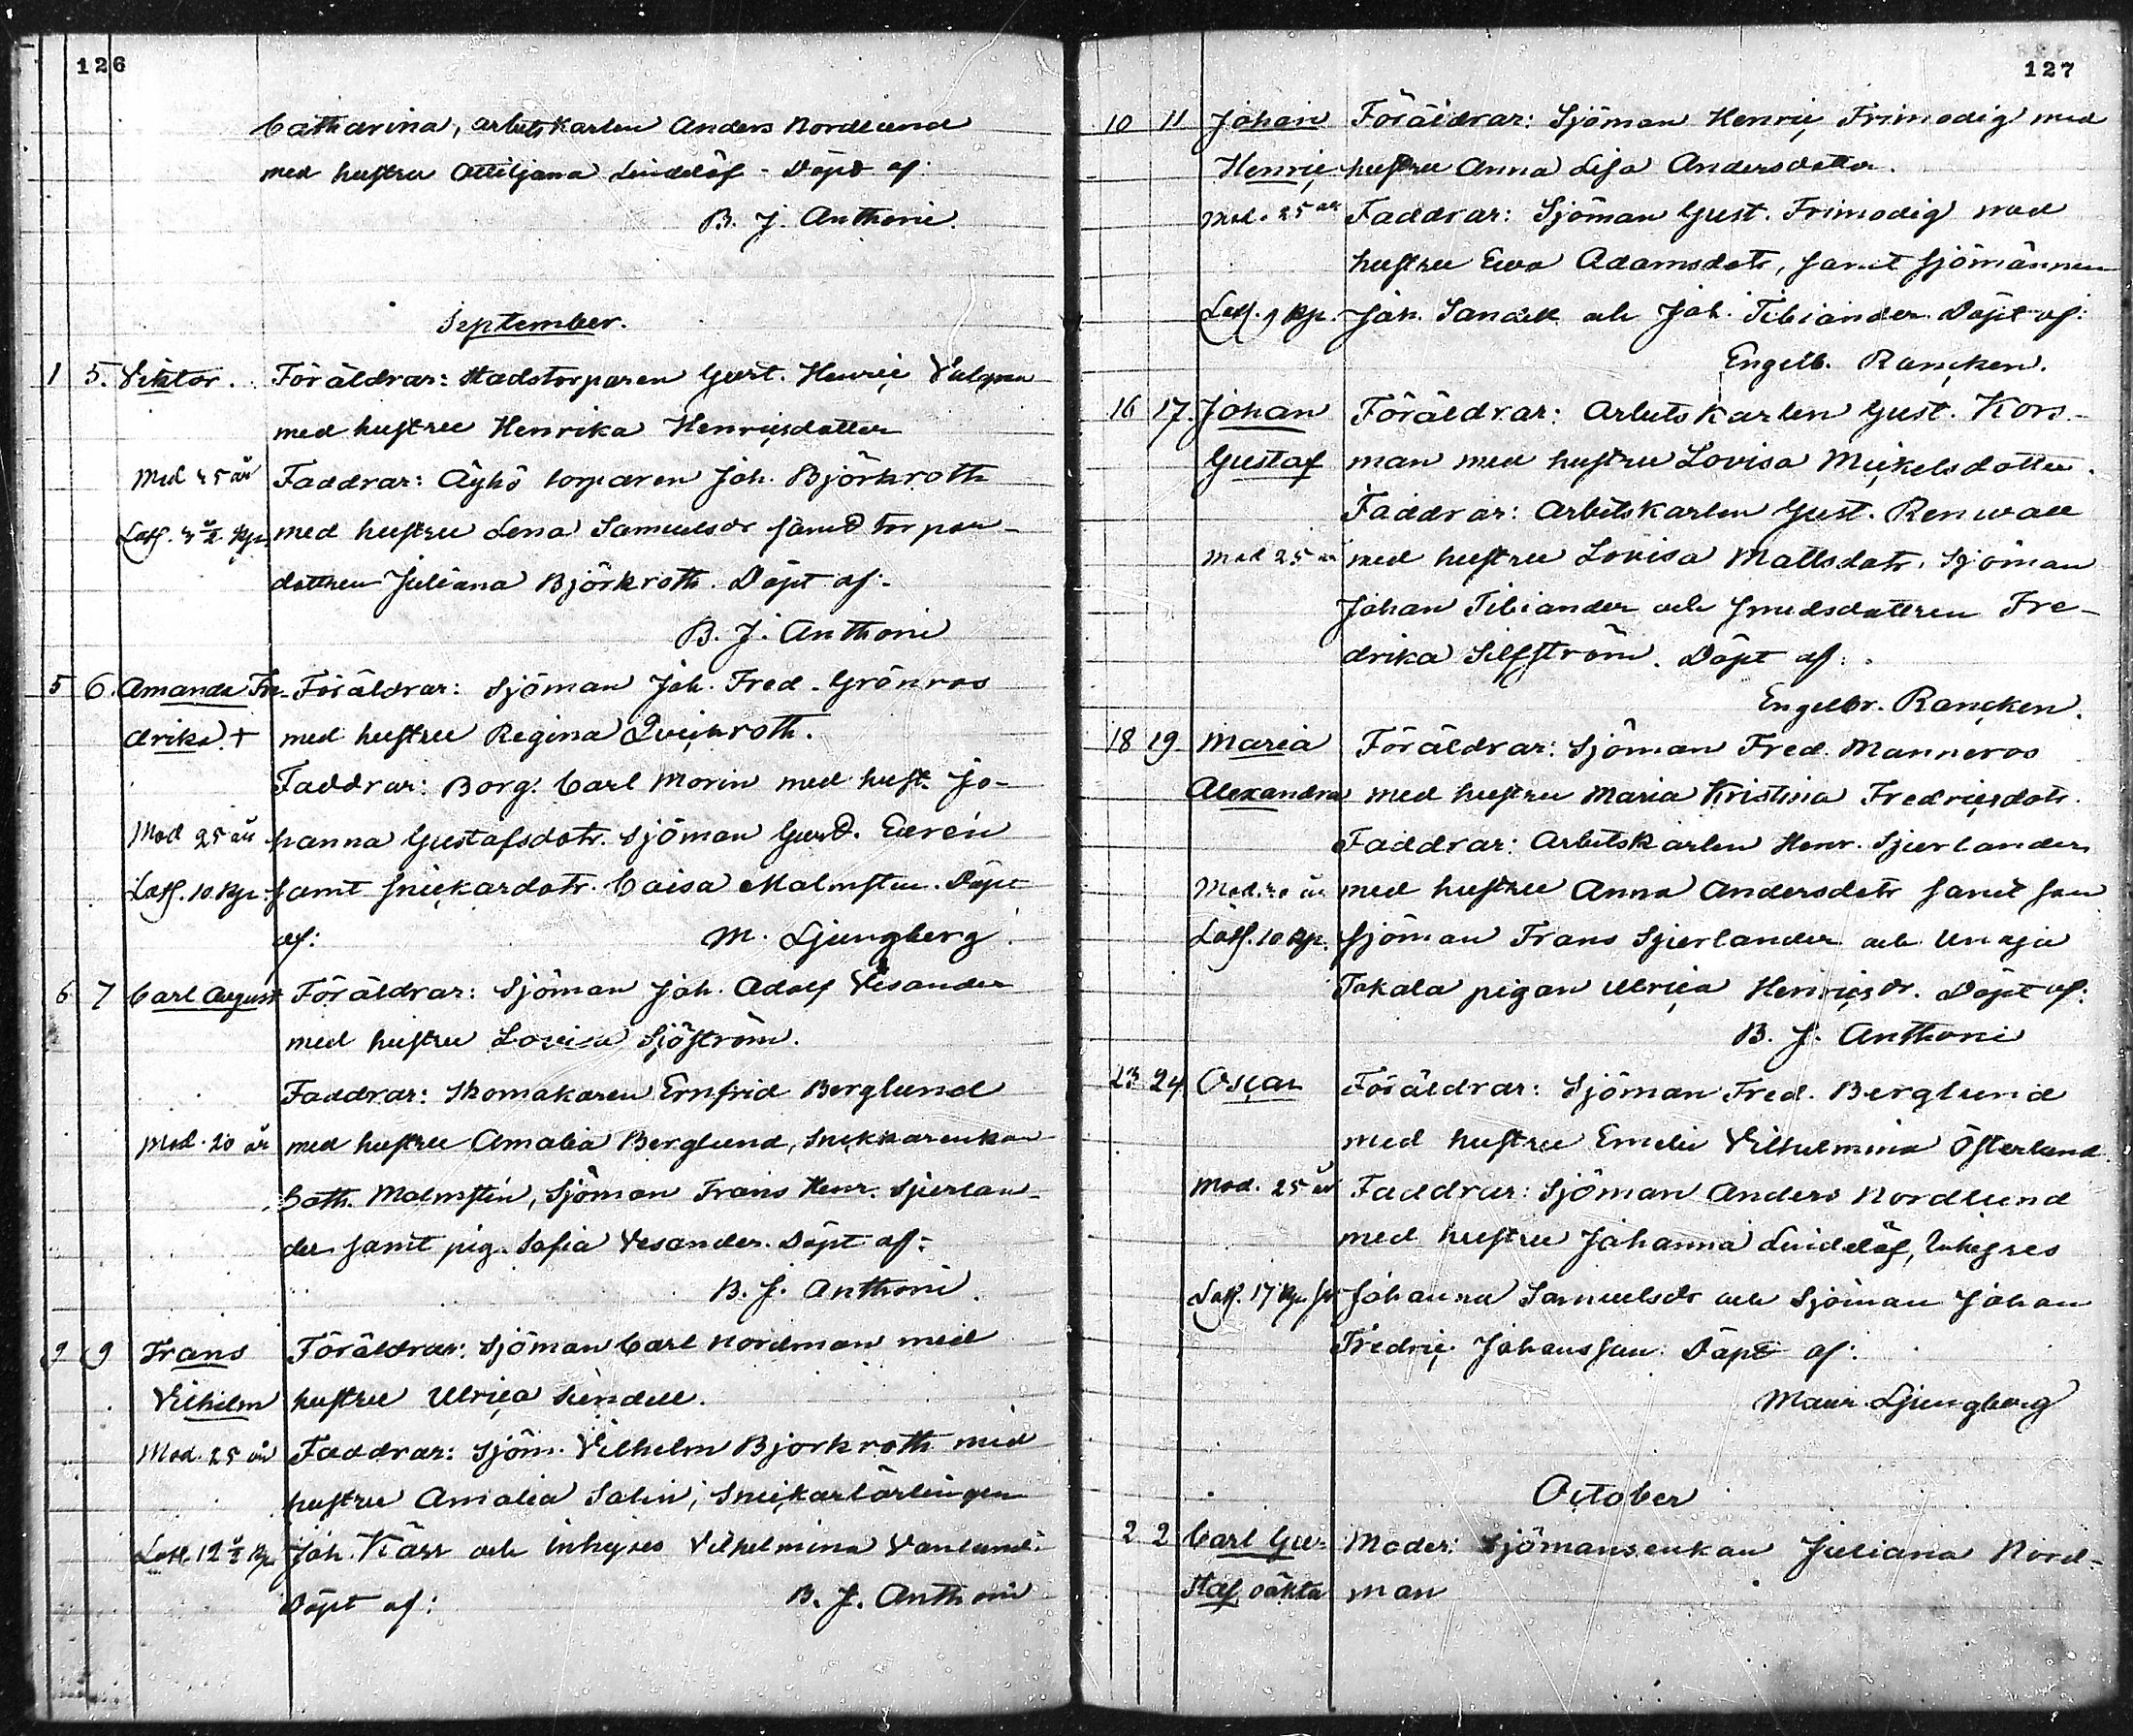 126
Catharina, arbetskarlen Anders Nordlund
med hustru Ottiljana Lindelöf - Döpt af:
B. J. Anthoni.
September.
1 5. Viktor. Föräldrar: Stadstorparen Gust. Henric
med hustru Henrika Henricsdotter
Mod 25 år Faddrar: Äyhö torparen Joh. Björkroth
Lösf. Kp. med hustru Lena Samuelsdr samt torpar-
dottren Juliana Björkroth. Döpt af:
B. J. Anthoni
5 6. Amanda Fre- Föräldrar: Sjöman Joh. Fred. Grönroos
drika + med hustru Regina Qvickroth.
Faddrar: Borg. Carl Morin med hust. Jo-
Mod 25 år hanna Gustafsdotr. Sjöman Gust. Evrén
Lösf. 10 Kp. samt snickardotr. Caisa Malmsten. Döpt
af: M. Ljungberg.
6 7 Carl August Föräldrar: Sjöman Joh. Adolf Vesander
med hustru Lovisa Sjöström.
Faddrar: Skomakaren Ernfrid Berglund
Mod. 20 år med hustru Amalia Berglund, Snickarenkan
Cath. Malmstén, Sjöman Frans Henr. Sjerlan-
der samt pig. Sofia Vesander. Döpt af:
B. J. Anthoni.
9 9 Frans Föräldrar: Sjöman Carl Nordman med
Vilhelm hustru Ulrica Lindell.
Mod. 25 år Faddrar: Sjöm. Vilhelm Björkroth med
hustru Amalia Salin, Snickarlärlingen
Lösf. 12 ½ Kp. Joh. Kärr och inhyses Vilhelmina Vanlund.
Döpt af: B. J. Anthoni
127
10 11 Johan Föräldrar: Sjöman Henric Frimodig med
Henric hustru Anna Lisa Andersdotter.
Mod. 25 år Faddrar: Sjöman Gust. Frimodig med
hustru Eva Adamsdotr, samt sjömännen
Lösf. 9 Kp. Joh. Sandell och Joh. Tibiander. Döpt af:
Engelb. Rancken.
16 17. Johan Föräldrar: Arbetskarlen Gust. Kors-
Gustaf man med hustru Lovisa Mickelsdotter.
Faddrar: Arbetskarlen Gust. Renwall
Mod 25 år med hustru Lovisa Mattsdotr, Sjöman
Johan Tibiander och smedsdottren Fre-
drika Silfström. Döpt af:
Engelbr. Rancken.
18 19 Maria Föräldrar: Sjöman Fred. Manneros
Alexandra med hustru Maria Kristina Fredricsdotr.
Faddrar: Arbetskarlen Henr. Sjerlander
Mod. 20 år med hustru Anna Andersdotr samt son
Lösf. 10 Kp. sjöman Frans Sjerlander och Unaja
Takala pigan Ulrica Henricsdr. Döpt af:
B. J. Anthoni
23 24 Oscar Föräldrar: Sjöman Fred. Berglund
med hustru Emelie Vilhelmina Österlund.
Mod. 25 år Faddrar: Sjöman Anders Nordlund
med hustru Johanna Lindelöf, Inhyses
Lösf. 17 Kp. Johanna Samuelsdr och Sjöman Johan
Fredric Johansson. Döpt af:
Maur. Ljungberg
October
2 2 Carl Gu- Moder: Sjömansenkan Juliana Nord-
staf oäkta man